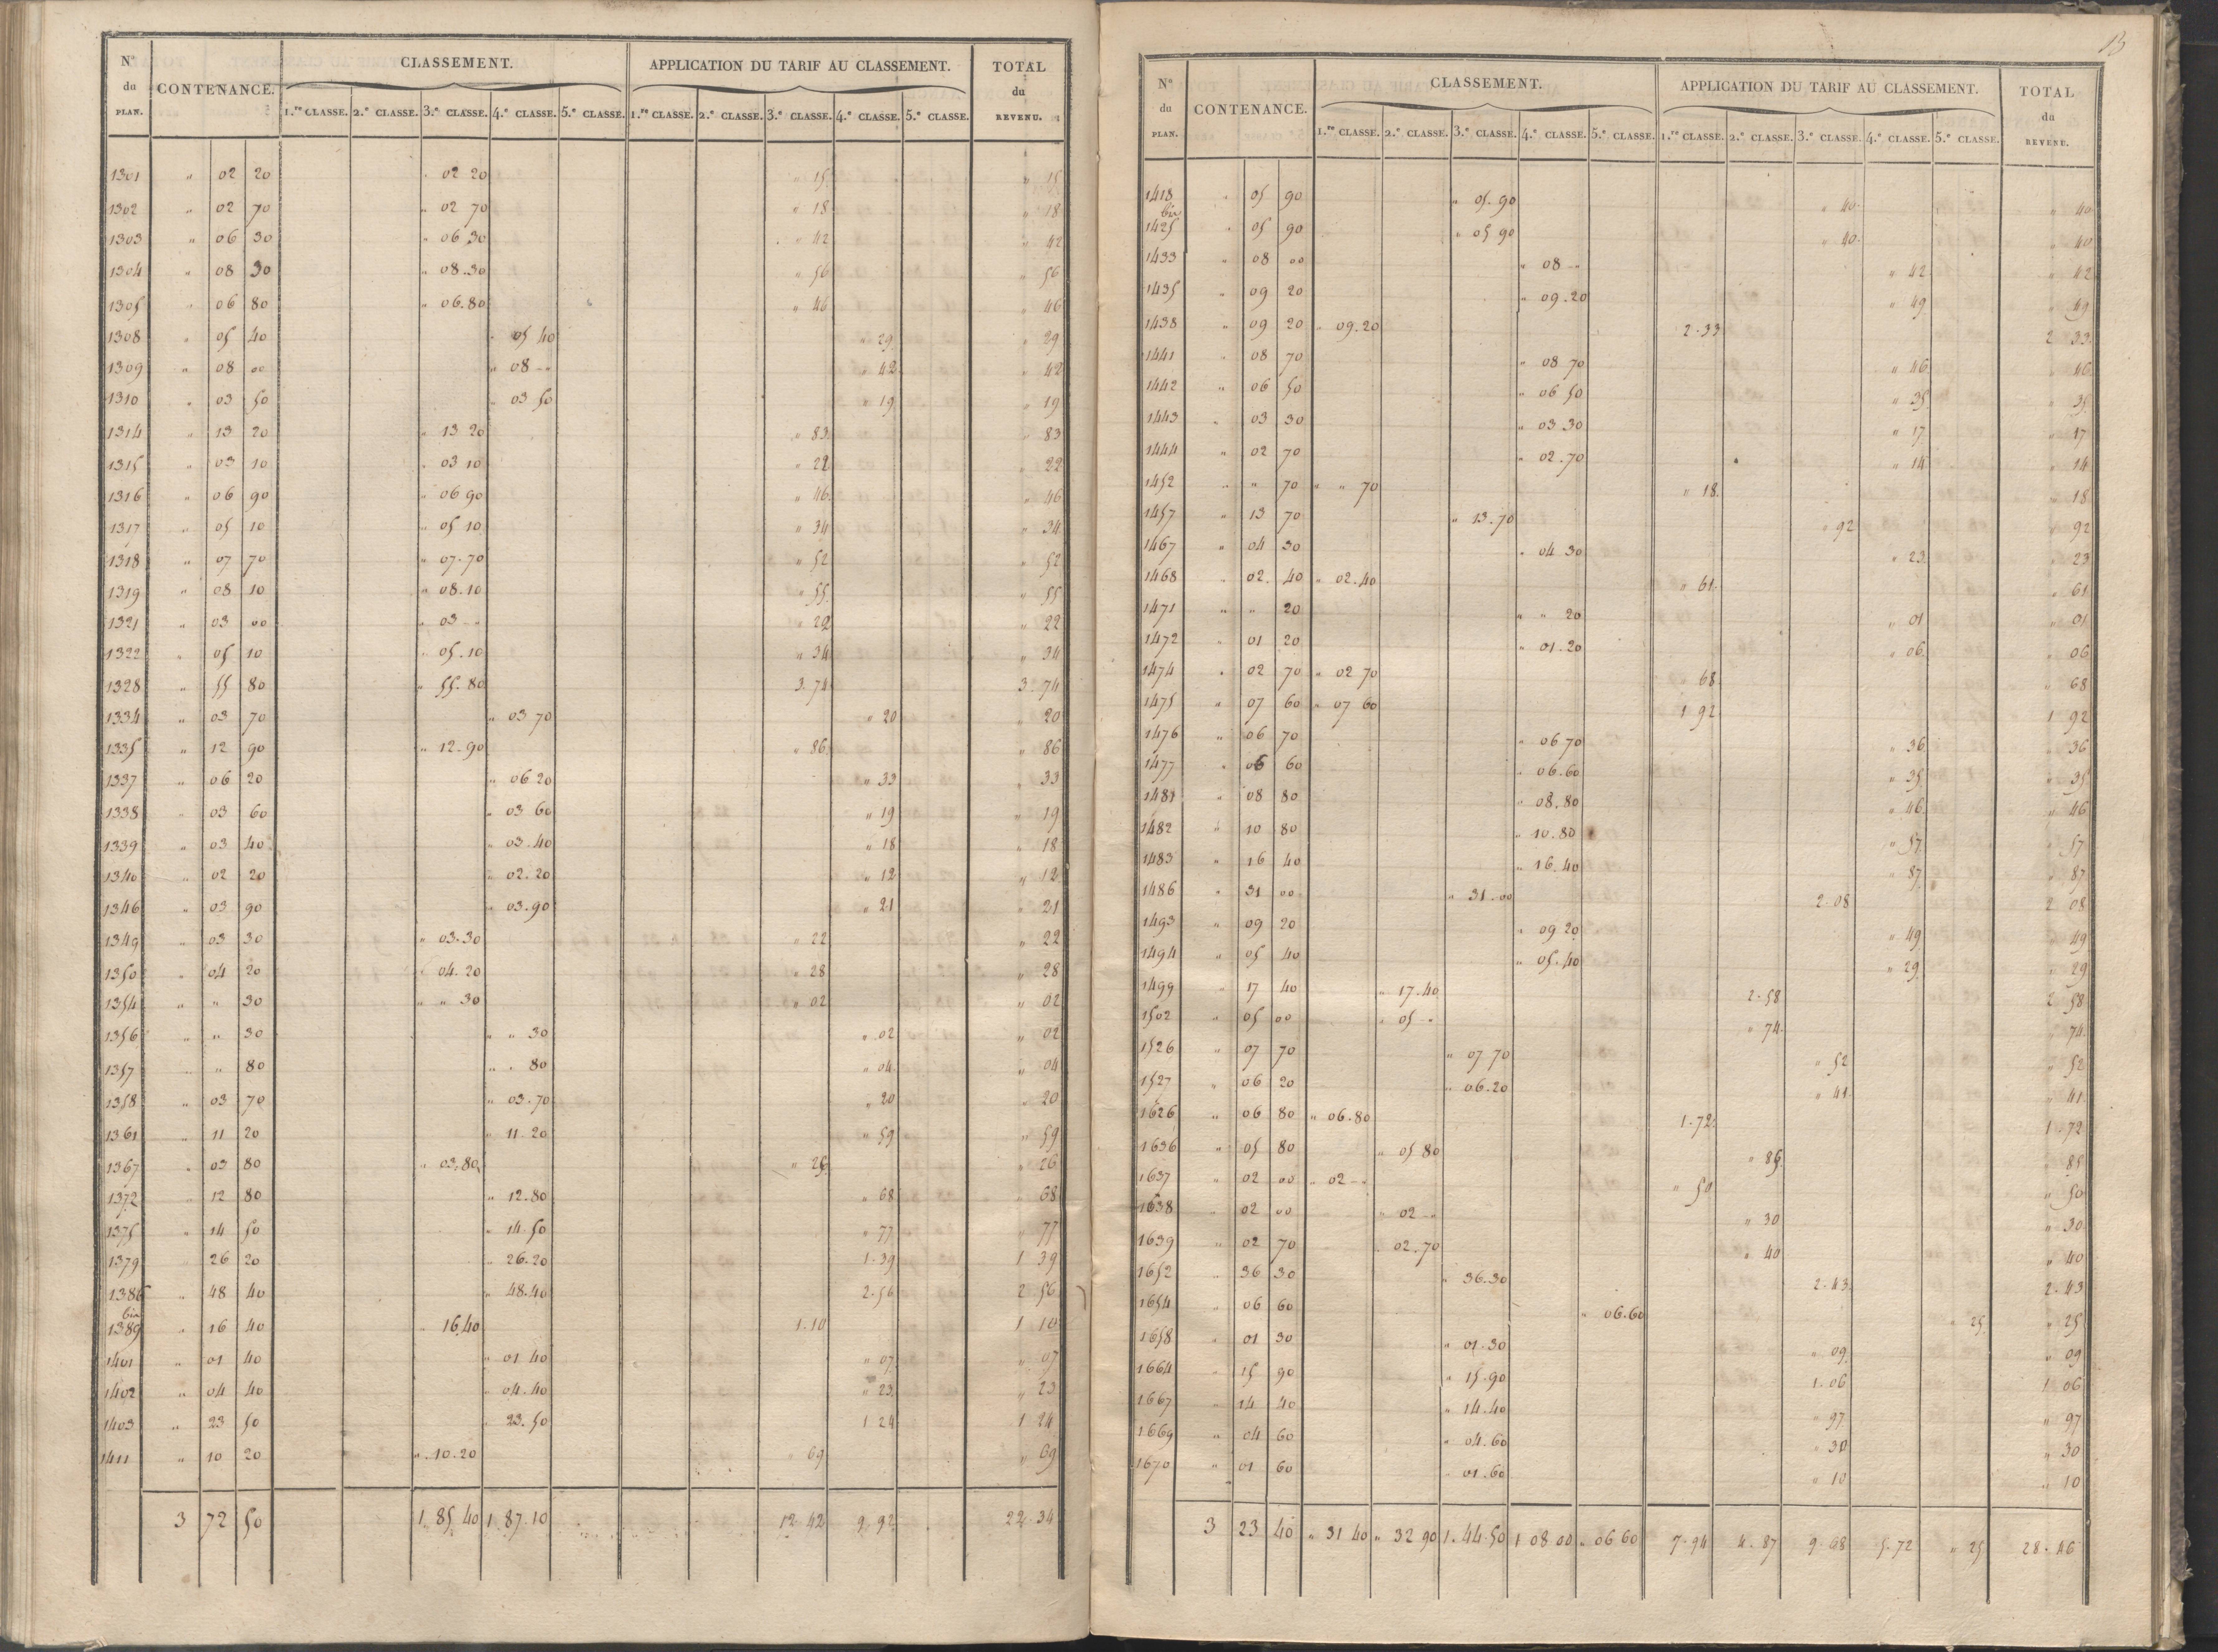 N° du PLAN. CONTENANCE. CLASSEMENT. APPLICATION DU TARIF AU CLASSEMENT. TOTAL du REVENU.
1.re CLASSE. 2.e CLASSE. 3.e CLASSE. 4.e CLASSE. 5.e CLASSE. 1.re CLASSE. 2.e CLASSE. 3.e CLASSE. 4.e CLASSE. 5.e CLASSE.
1301 " 02 20 " 02 20 " 15 " 15
1302 " 02 70 " 02 70 " 18 " 18
1303 " 06 30 " 06 30 " 42 " 42
1304 " 08 30 " 08.30 " 56 " 56
1305 " 06 80 " 06.80 " 46 " 46
1308 " 05 40 " 05 40 " 29 " 29
1309 " 08 00 " 08 -- " 42 " 42
1310 " 03 50 " 03 50 " 19 " 19
1314 " 13 20 " 13 20 " 83 " 83
1315 " 03 10 " 03 10 " 22 " 22
1316 " 06 90 " 06 90 " 46 " 46
1317 " 05 10 " 05 10 " 34 " 34
1318 " 07 70 " 07.70 " 52 " 52
1319 " 08 10 " 08.10 " 55 " 55
1321 " 03 00 " 03 -- " 22 " 22
1322 " 05 10 " 05.10 " 34 " 34
1328 " 55 80 " 55.80 3.74 3.74
1334 " 03 70 " 03 70 " 20 " 20
1335 " 12 90 " 12.90 " 86 " 86
1337 " 06 20 " 06 20 " 33 " 33
1338 " 03 60 " 03 60 " 19 " 19
1339 " 03 40 " 03.40 " 18 " 18
1340 " 02 20 " 02.20 " 12 " 12
1346 " 03 90 " 03.90 " 21 " 21
1349 " 03 30 " 03.30 " 22 " 22
1350 " 04 20 " 04.20 " 28 " 28
1354 " " 30 " " 30 " 02 " 02
1356 " " 30 " " 30 " 02 " 02
1357 " " 80 " " 80 " 04 " 04
1358 " 03 70 " 03.70 " 20 " 20
1361 " 11 20 " 11.20 " 59 " 59
1367 " 03 80 " 03.80 " 26 " 26
1372 " 12 80 " 12.80 " 68 " 68
1375 " 14 50 " 14.50 " 77 " 77
1379 " 26 20 " 26.20 1.39 1 39
1386 " 48 40 " 48.40 2.56 2 56
bis
1389 " 16 40 " 16.40 1.10 1 10
1401 " 01 40 " 01 40 " 07 " 07
1402 " 04 40 " 04.40 " 23 " 23
1403 " 23 50 " 23.50 1 24 1 24
1411 " 10 20 " 10.20 " 69 " 69
3 72 50 1.85.40 1.87.10 12.42 9.92 22.34
13
N° du PLAN. CONTENANCE. CLASSEMENT. APPLICATION DU TARIF AU CLASSEMENT. TOTAL du REVENU.
1.re CLASSE. 2.e CLASSE. 3.e CLASSE. 4.e CLASSE. 5.e CLASSE. 1.re CLASSE. 2.e CLASSE. 3.e CLASSE. 4.e CLASSE. 5.e CLASSE.
1418 " 05 90 " 05.90 " 40 " 40
bis
1425 " 05 90 " 05 90 " 40 " 40
1433 " 08 00 " 08 -- " 42 " 42
1435 " 09 20 " 09.20 " 49 " 49
1438 " 09 20 " 09.20 2.33 2 33
1441 " 08 70 " 08 70 " 46 " 46
1442 " 06 50 " 06 50 " 35 " 35
1443 " 03 30 " 03 30 " 17 " 17
1444 " 02 70 " 02.70 " 14 " 14
1452 " " 70 " " 70 " 18 " 18
1457 " 13 70 " 13.70 " 92 " 92
1467 " 04 30 " 04 30 " 23 " 23
1468 " 02 40 " 02.40 " 61 " 61
1471 " " 20 " " 20 " 01 " 01
1472 " 01 20 " 01.20 " 06 " 06
1474 " 02 70 " 02 70 68 " 68
1475 " 07 60 " 07 60 1 92 1 92
1476 " 06 70 " 06 70 " 36 " 36
1477 " 06 60 " 06.60 " 35 " 35
1481 " 08 80 " 08.80 " 46 " 46
1482 " 10 80 " 10.80 " 57 " 57
1483 " 16 40 " 16.40 " 87 " 87
1486 " 31 00 " 31.00 2.08 2 08
1493 " 09 20 " 09 20 " 49 " 49
1494 " 05 40 " 05.40 " 29 " 29
1499 " 17 40 " 17.40 2.58 2 58
1502 " 05 00 " 05 -- " 74 " 74
1526 " 07 70 " 07 70 " 52 " 52
1527 " 06 20 " 06.20 " 41 " 41
1626 " 06 80 " 06.80 1.72 1.72
1636 " 05 80 " 05 80 " 85 " 85
1637 " 02 00 " 02 -- " 50 " 50
1638 " 02 00 " 02 -- " 30 " 30
1639 " 02 70 " 02.70 " 40 " 40
1652 " 36 30 " 36.30 2.43 2.43
1654 " 06 60 " 06.60 " 25 " 25
1658 " 01 30 " 01.30 " 09 " 09
1664 " 15 90 " 15.90 1.06 1 06
1667 " 14 40 " 14.40 " 97 " 97
1669 " 04 60 " 04.60 " 30 " 30
1670 " 01 60 " 01.60 " 10 " 10
3 23 40 " 31 40 " 32 90 1.44.50 1 08 00 " 06 60 7.94 4.87 9.68 5.72 " 25 28.46